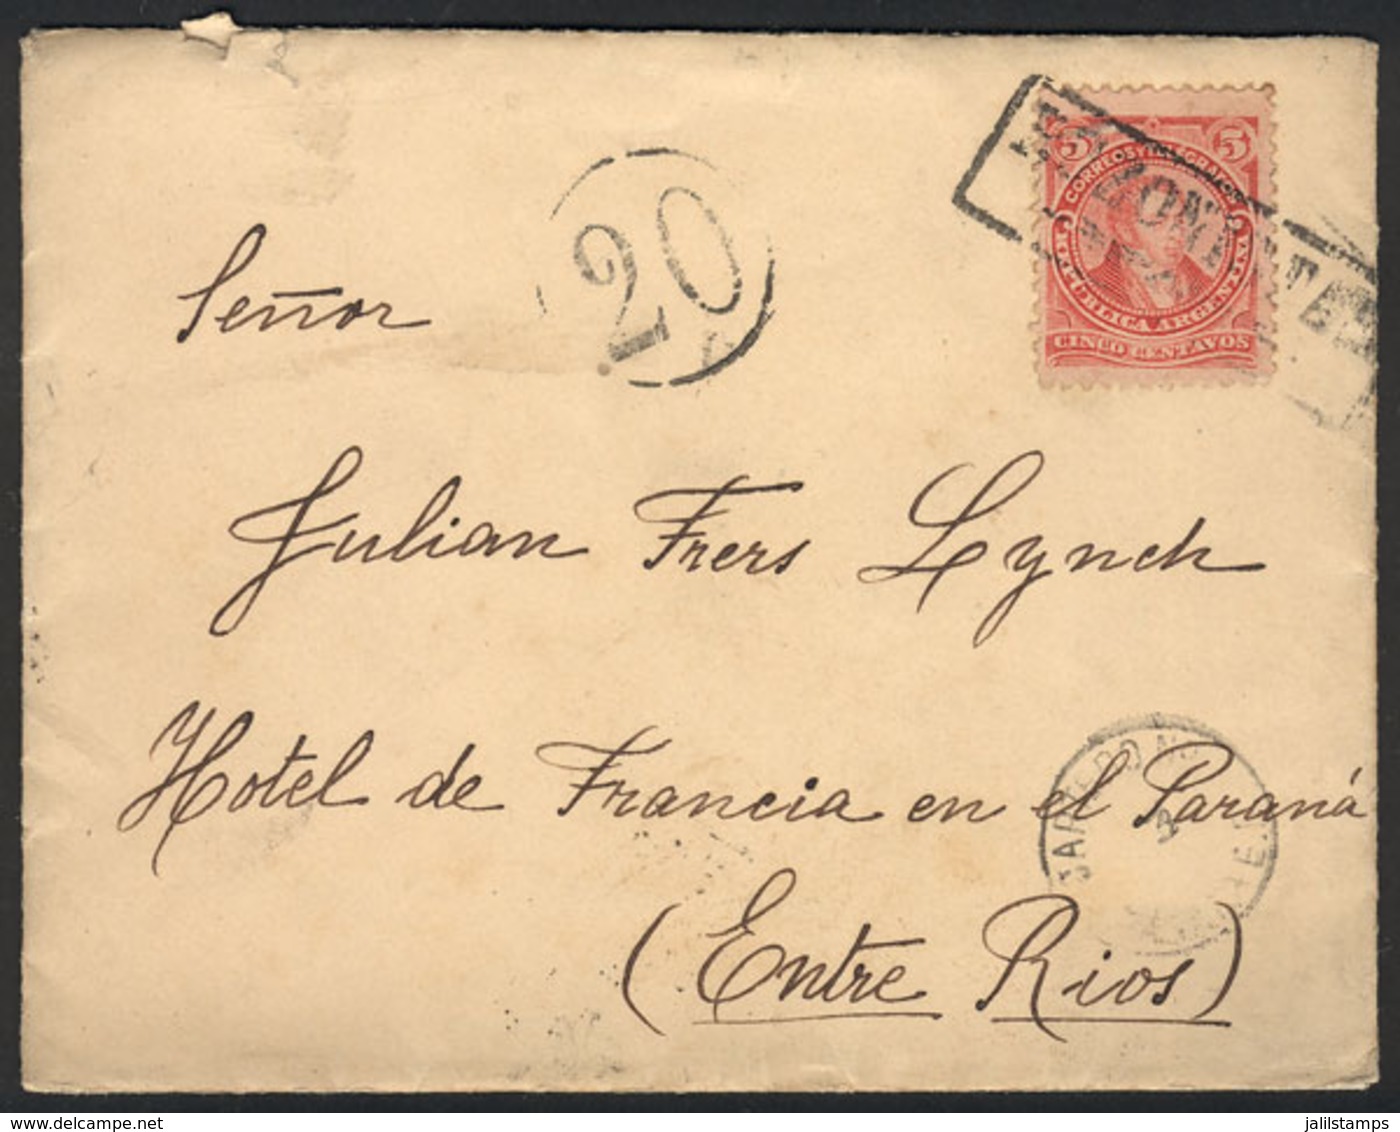 5 5
CORREOS Y TELEGRAFOS
20
REPUBLICA ARGENTINA
CINCO CENTAVOS
Señor
Julian Frers Lynch
Hotel de Francia en el Paraná
(Entre Rios)
delcampe.net
jalilstamps